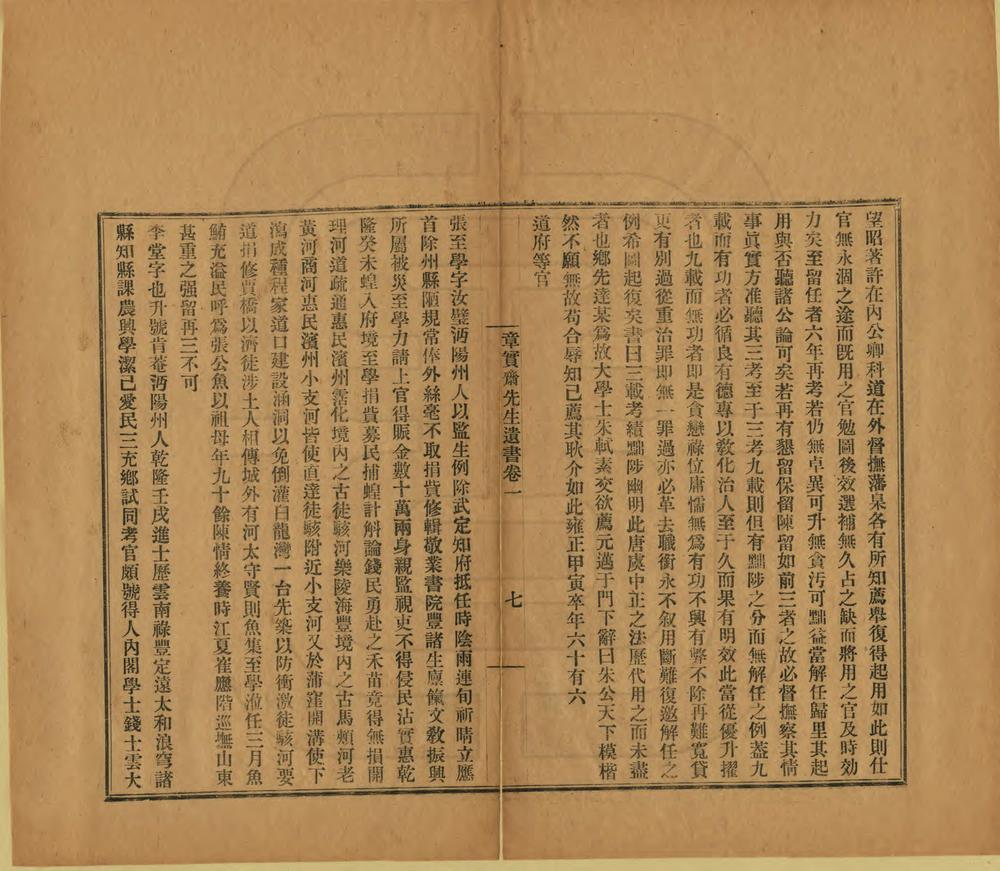 望昭著許在內公卿科道在外督撫藩臬各有所知薦舉復得起用如此則仕
官無永涸之途而既用之官勉圖後效選補無久占之缺而將用之官及時効
力矣至留任者六年再考若仍無卓異可升無貪汚可黜益當解任歸里其起
用與否聽諸公論可矣若再有懇留保留陳留如前三者之故必督撫察其情
事眞實方准聽其三考至于三考九載則但有黜陟之分而無解任之例蓋九
載而有功者必循良有德專以敎化治人至于久而果有明效此當從優升擢
者也九載而無功者即是貪戀祿位庸懦無爲有功不興有弊不除再難寬貸
更有別過從重治罪即無一罪過亦必革去職銜永不叙用斷難復邀解任之
例希圖起復矣書曰三載考績黜陟幽明此唐虞中正之法歷代用之而未盡
者也鄉先達某爲故大學士朱軾素交欲薦元邁于門下辭曰朱公天下模楷
然不願無故苟合辱知己薦其耿介如此雍正甲寅卒年六十有六
道府等官
章實齋先生遺書卷一
七
張至學字汝璧沔陽州人以監生例除武定知府抵任時陰雨連旬祈晴立應
首除州縣陋規常俸外絲毫不取捐貲修輯敬業書院豐諸生廩餼文敎振興
所屬被災至學力請上官得賑金數十萬兩身親監視吏不得侵民沾實惠乾
隆癸未蝗入府境至學捐貲募民捕蝗計斛論錢民勇赴之禾苗竟得無損開
理河道疏通惠民濱州霑化境內之古徒駭河樂陵海豐境內之古馬頰河老
黃河商河惠民濱州小支河皆使直達徒駭附近小支河又於蒲窪開溝使下
瀉成種程家道口建設涵洞以免倒灌白龍灣一台先築以防衝激徒駭河要
道捐修賈橋以濟徒涉土人相傳城外有河太守賢則魚集至學涖任三月魚
鮪充溢民呼爲張公魚以祖母年九十餘陳情終養時江夏崔應階巡撫山東
甚重之强留再三不可
李堂字也升號肯菴沔陽州人乾隆壬戌進士歷雲南祿豐定遠太和浪穹諸
縣知縣課農興學潔己愛民三充鄉試同考官頗號得人內閣學士錢士雲大